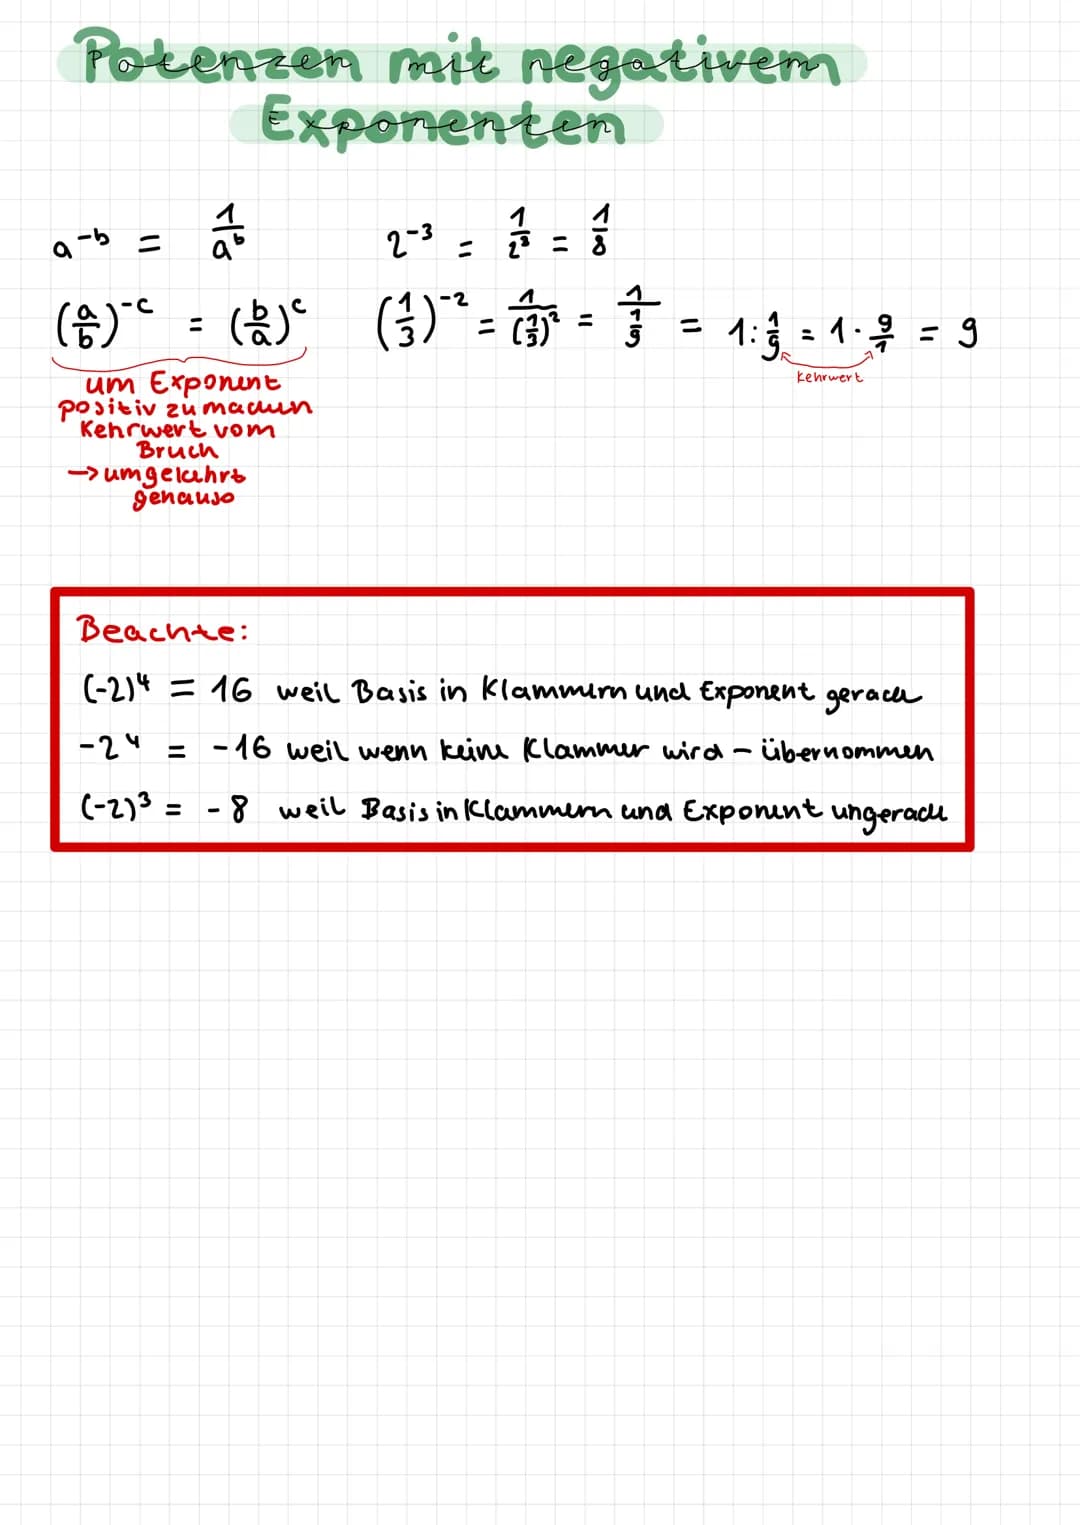 Potenzen mit negativem
Exponenten
a⁻ᵇ = 1/aᵇ   2⁻³ = 1/2³ = 1/8
(a/b)⁻ᶜ = (b/a)ᶜ   (1/3)⁻² = 1/(1/3)² = 1/(1/9) = 1:1/9 = 1·9/1 = 9
Kehrwert
um Exponent
positiv zu machen
Kehrwert vom
Bruch
→ umgekehrt
genauso
Beachte:
(-2)⁴ = 16 weil Basis in Klammern und Exponent gerade
-2⁴ = -16 weil wenn keine Klammer wird - übernommen
(-2)³ = -8 weil Basis in Klammern und Exponent ungerade